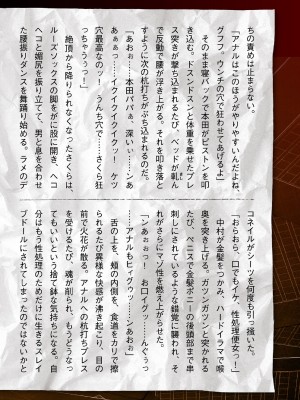 ちの責めは止まらない。
「アナルはこのほうがやりやすいんだよね、
グフフ。ウンチの穴で狂わせてあげるよ」
そのまま寝バックで本田がピストンを叩
き込む。ドスンドスンと体重を乗せたプレ
ス突きが撃ち込まれるたび、ベッドが軋ん
で反動で腰が浮き上がる。それを叩き落と
すように次の杭打ちがぶち込まれるのだ。
穴最高なのッ！ うんち穴で……さくら狂
っちゃうっっ！」
絶頂から降りられなくなったさくらは、
ルーズソックスの脚をがに股に開き、ヘコ
ヘコと媚尻を振り立てて、男と息を合わせ
た腰振りダンスを舞踊り始める。ラメのデ
コネイルがシーツを何度も引っ掻いた。
「おらおら、口でもイケ、性処理便女っ！」
中村が金髪をつかみ、ハードイラマで喉
奥を突き上げる。ガツンガツンと突かれる
たび、ペニスで金髪ポニーの後頭部まで串
刺しにされているような錯覚に襲われ、そ
れがさらにマゾ性を燃え上がらせた。
舌の上を、頬の内側を、食道をカリで擦
られるたび異様な快感が沸き起こり、目の
前で火花が散る。アナルへの杭打ちプレス
を受けるたび、魂が削られ、もうどうなっ
てもいいという捨て鉢な気持ちになる。自
分はもう性処理のためだけに生きるスレイ
ブドールにされてしまったのではないかと